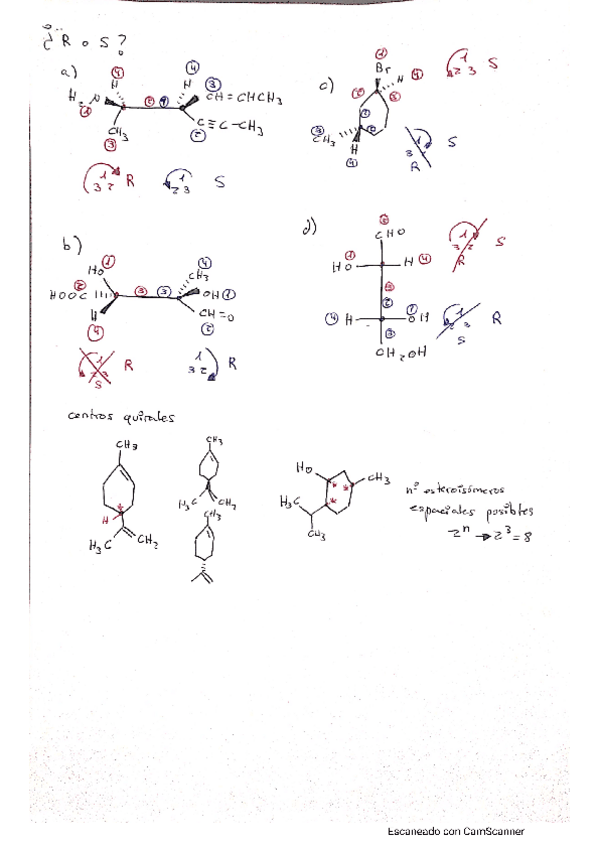 ¿R o S?
a)
④ ④ ③
H H CH=CHCH3
H2N ② ①
①
CH3 C≡C-CH3
③ ②
1 3 2 R
1 2 3 S
b)
④
CH3
HO ①
② HOOC ③ ③ OH ①
H CH=O
④ ②
1 2 3 S R
1 3 2 R
c)
①
Br
H ④
② ③
③ CH3
H
④
1 2 3 S
1 3 2 R S
d)
②
CHO
① HO H ④
③
②
④ H OH ①
③
CH2OH
1 3 2 R S
1 2 3 S R
centros quirales
CH3
H
H3C CH2
CH3
H3C CH2
CH3
HO CH3
H3C
CH3
nº estereoisómeros
espaciales posibles
2^n → 2^3 = 8
Escaneado con CamScanner